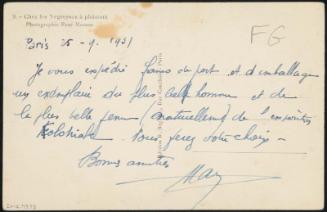 9. - Chez les Négresses à plateaux
Photographie René Moreau
FG
Paris 25-9-1931
Je vous expédie franco de port et d'emballage
un exemplaire du plus bel homme et de
la plus belle femme (naturellement) de l'exposition
Coloniale. Vous ferez votre choix -
Bonnes amitiés